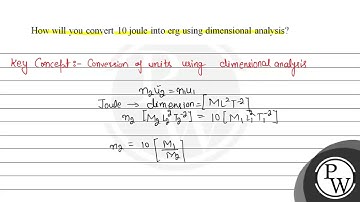 How will you convert 10 joule into erg using dimensional analysis?
Key Concept:- Conversion of units using dimensional analysis
n₂u₂ = n₁u₁
Joule → dimension = [ML²T⁻²]
n₂ [M₂ L₂² T₂⁻²] = 10 [M₁ L₁² T₁⁻²]
n₂ = 10 [M₁/M₂]
PW